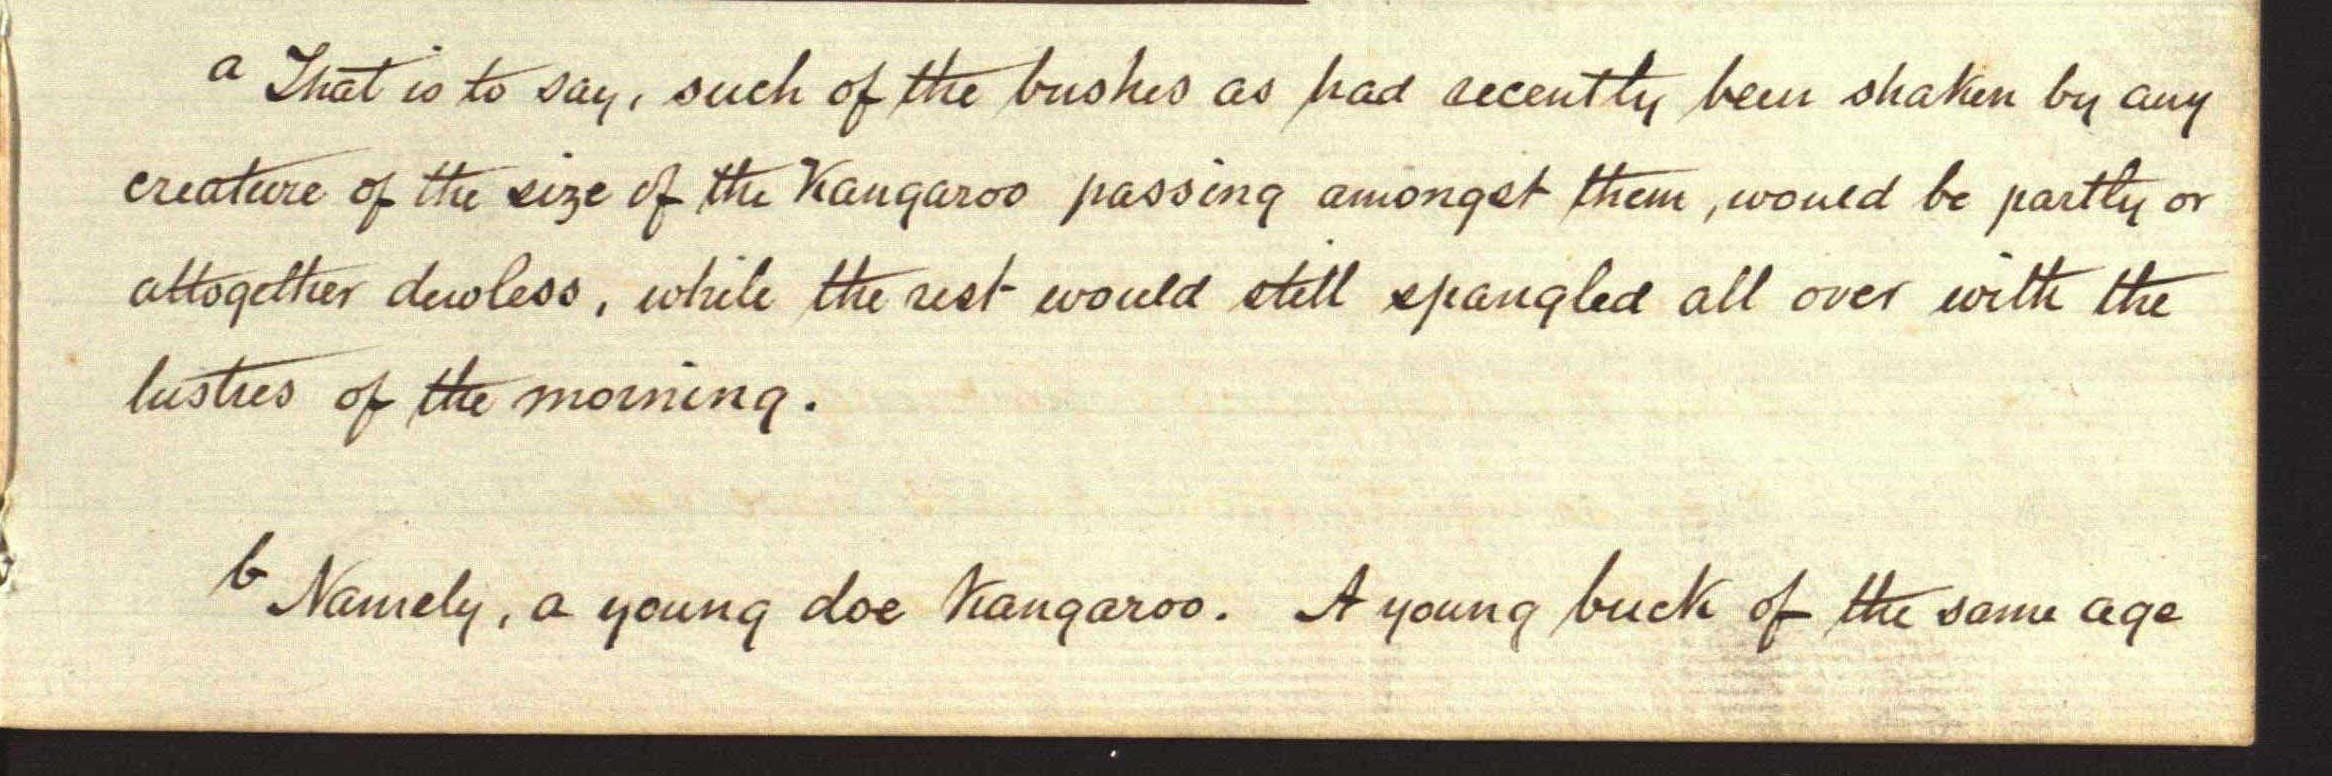 a That is to say, such of the bushes as had recently been shaken by any
creature of the size of the Kangaroo passing amongst them, would be partly or
altogether dewless, while the rest would still spangled all over with the
lustres of the morning.
b Namely, a young doe Kangaroo. A young buck of the same age